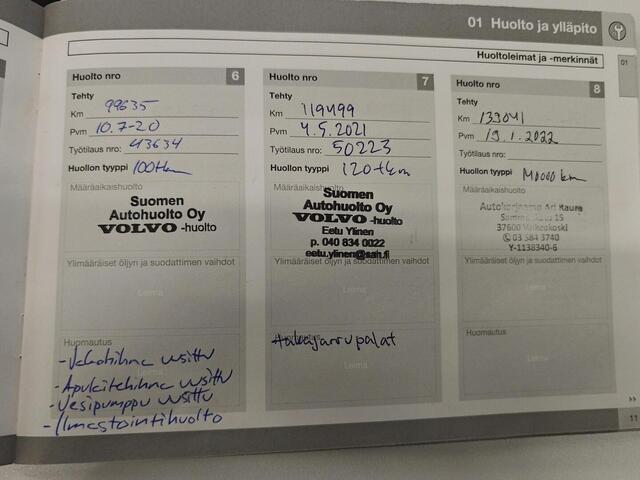 01 Huolto ja ylläpito
Huoltoleimat ja -merkinnät
01
Huolto nro 6
Tehty
Km 99635
Pvm 10.7-20
Työtilaus nro: 43634
Huollon tyyppi 100tkm
Määräaikaishuolto
Suomen
Autohuolto Oy
VOLVO -huolto
Ylimääräiset öljyn ja suodattimen vaihdot
Leima
Huomautus
Leima
- Jakohihna uusittu
- Apulaitehihna uusittu
- Vesipumppu uusittu
- Ilmastointihuolto
Huolto nro 7
Tehty
Km 119499
Pvm 4.5.2021
Työtilaus nro: 50223
Huollon tyyppi 120tkm
Määräaikaishuolto
Suomen
Autohuolto Oy
VOLVO -huolto
Eetu Ylinen
p. 040 834 0022
eetu.ylinen@sah.fi
Ylimääräiset öljyn ja suodattimen vaihdot
Leima
Huomautus
Takajarrupalat
Leima
Huolto nro 8
Tehty
Km 139041
Pvm 19.1.2022
Työtilaus nro:
Huollon tyyppi 140000 km
Määräaikaishuolto
Autokorjaamo Ari Kaura
15
37600 Valkeakoski
03 584 3740
Y-1138340-6
Ylimääräiset öljyn ja suodattimen vaihdot
Leima
Huomautus
Leima
11